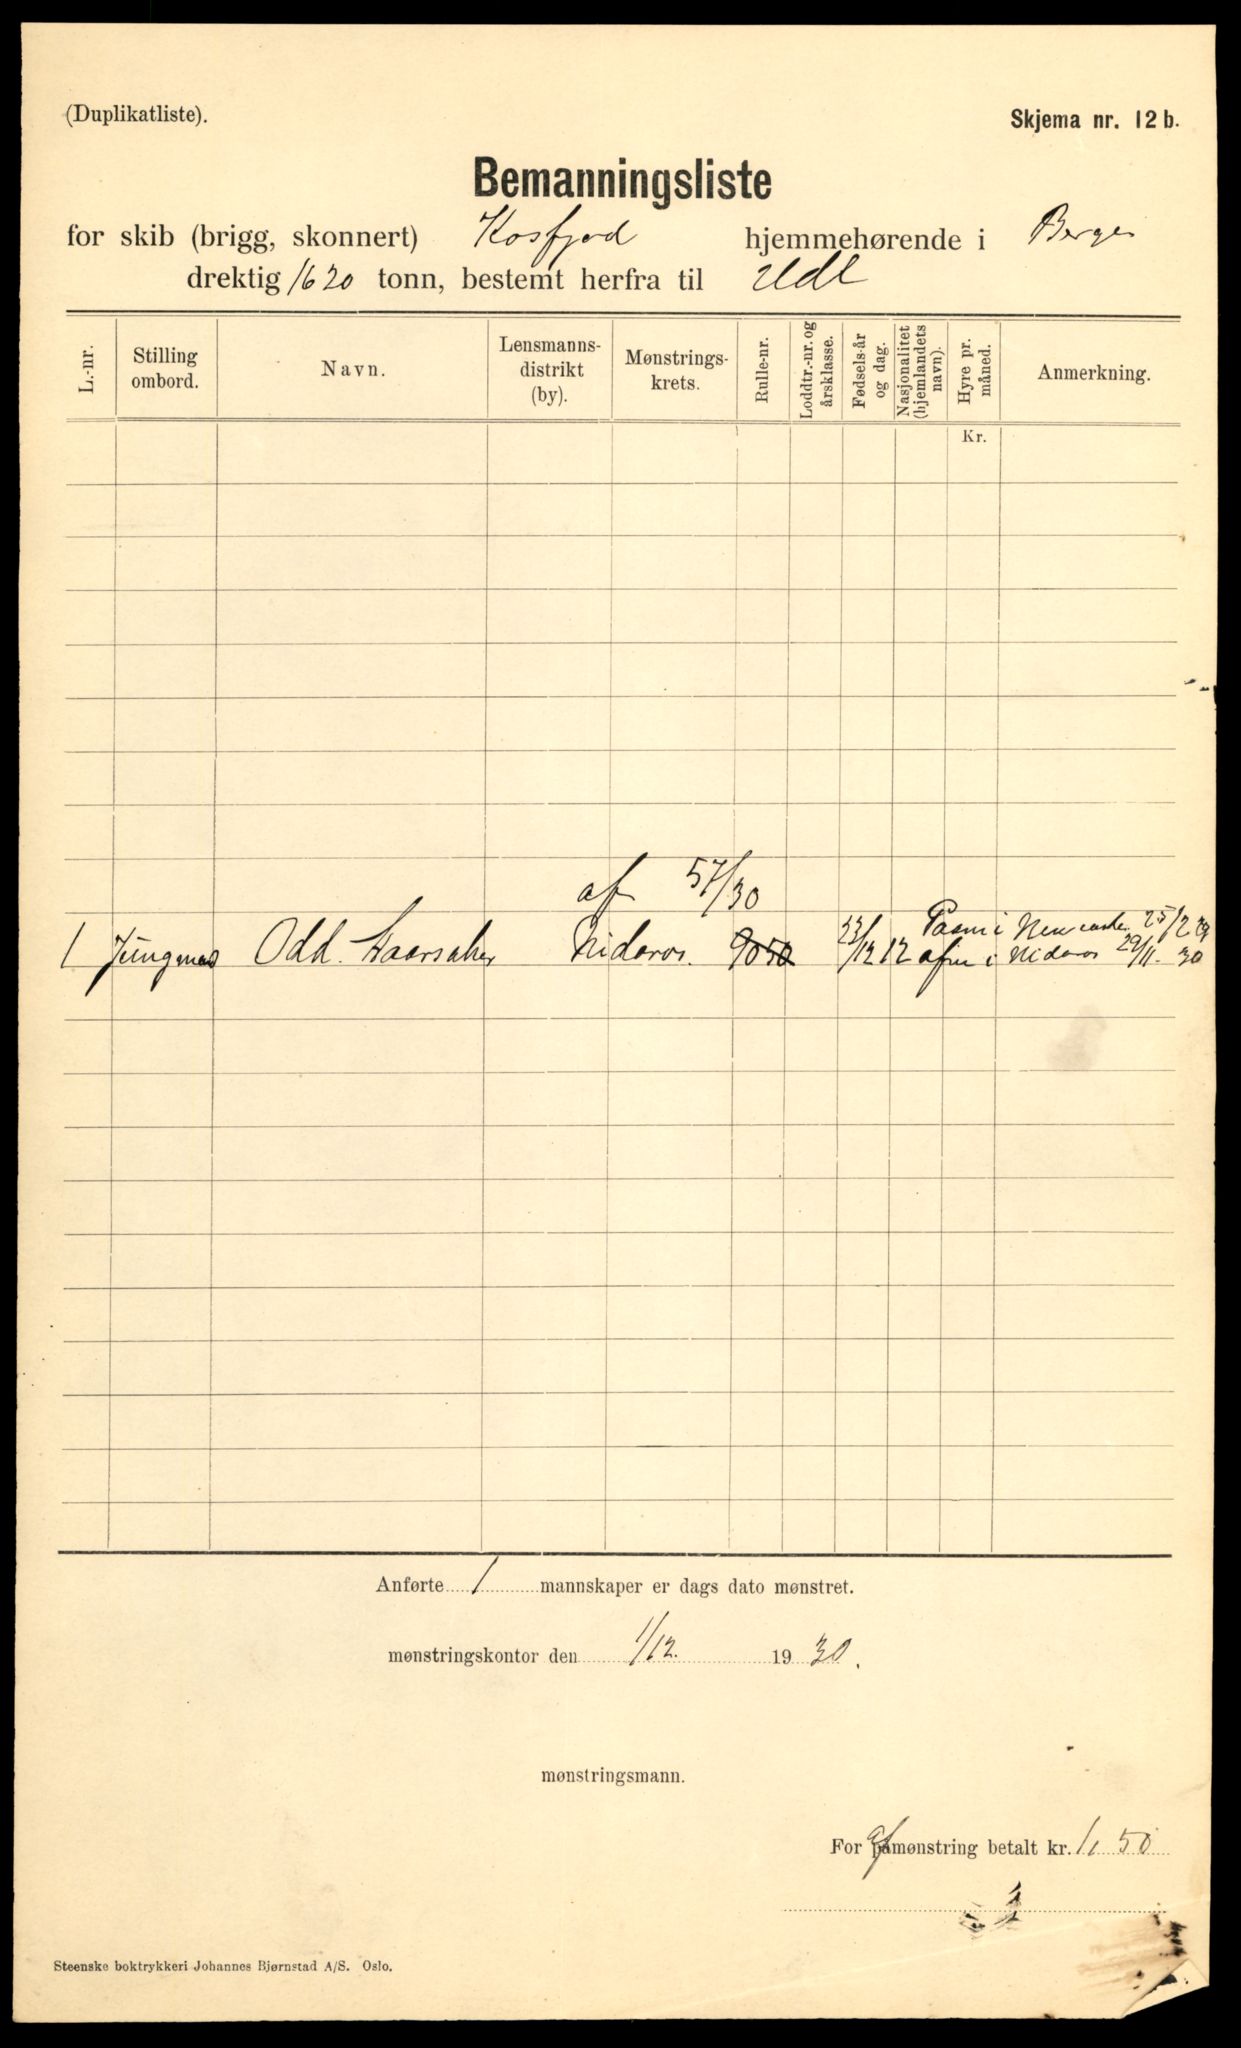 (Duplikatliste).
Skjema nr. 12 b.
Bemanningsliste
for skib (brigg, skonnert) Kosfjord hjemmehørende i Bergen
drektig 1620 tonn, bestemt herfra til Udl
L.-nr. Stilling ombord. Navn. Lensmanns-distrikt (by). Mønstrings-krets. Rulle-nr. Loddtr.-nr. og årsklasse. Fødsels-år og dag. Nasjonalitet (hjemlandets navn). Hyre pr. måned. Anmerkning.
Kr.
af 57/30
1 Jungmas Odd. Nidaros. 9050 23/12 12 Paam i Newcastle 25/2 29
afm i Nidaros 29/11. 30
Anførte 1 mannskaper er dags dato mønstret.
mønstringskontor den 1/12. 1930.
mønstringsmann.
For afmønstring betalt kr. 1,50
Steenske boktrykkeri Johannes Bjørnstad A/S. Oslo.